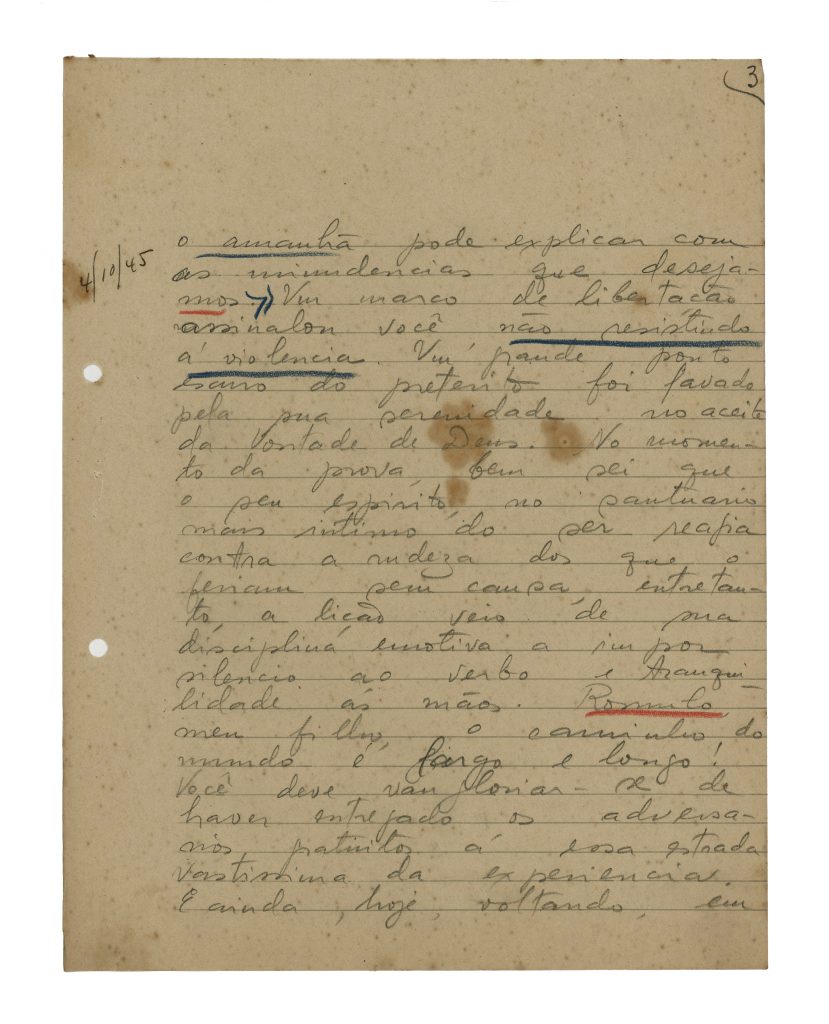 3
4/10/45
o amanhã pode explicar com
as minudencias que deseja-
mos. Um marco de libertação
assinalou você não resistindo
á violencia. Um grande ponto
escuro do preterito foi lavado
pela sua serenidade no aceite
da Vontade de Deus. No momen-
to da prova, bem sei que
o seu espirito, no santuario
mais intimo do ser reagia
contra a rudeza dos que o
feriam sem causa, entretan-
to, a lição veio de sua
disciplina emotiva a impor
silencio ao verbo e tranqui-
lidade ás mãos. Romulo,
meu filho, o caminho do
mundo é largo e longo!
Você deve vangloriar-se de
haver entregado os adversa-
rios gratuitos á essa estrada
vastissima da experiencia.
E ainda, hoje, voltando, em